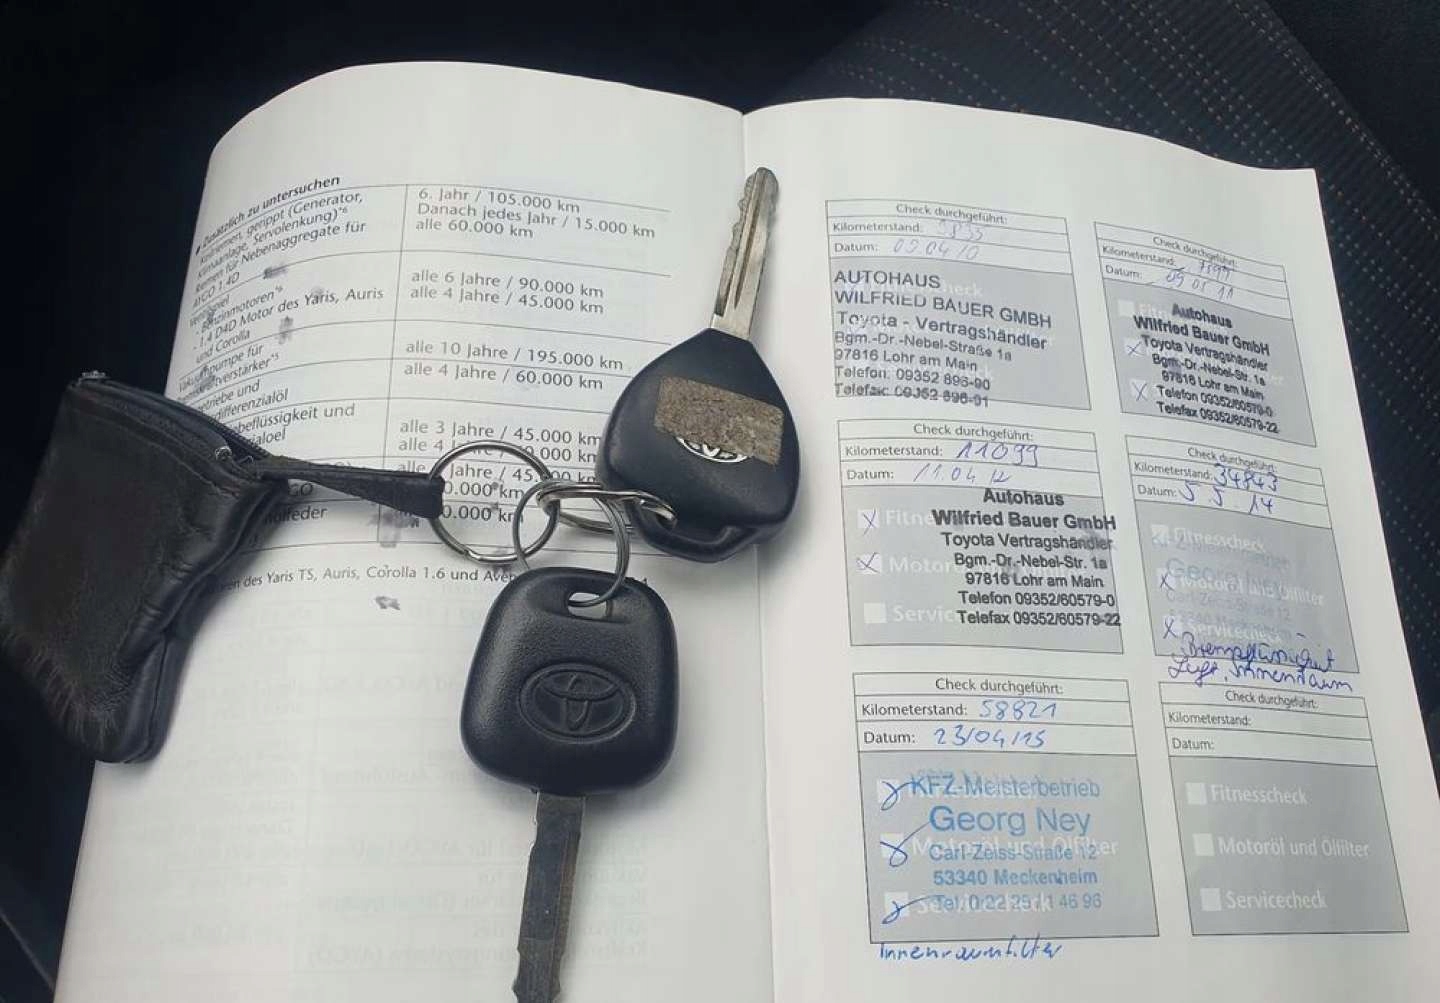 • Zusätzlich zu untersuchen
Keilriemen, gerippt (Generator,
Klimaanlage, Servolenkung)*6
Riemen für Nebenaggregate für
AYGO 1.4D
6. Jahr / 105.000 km
Danach jedes Jahr / 15.000 km
alle 60.000 km
Ventilspiel
- Benzinmotoren*6
- 1.4 D4D Motor des Yaris, Auris
und Corolla
alle 6 Jahre / 90.000 km
alle 4 Jahre / 45.000 km
pumpe für
verstärker*5
alle 10 Jahre / 195.000 km
etriebe und
differenzialöl
alle 4 Jahre / 60.000 km
beflüssigkeit und
zialoel
alle 3 Jahre / 45.000 km
alle 4
0.000 km
alle
Jahre / 45
0.000 km
GO
0.000 km
feder
ren des Yaris TS, Auris, Corolla 1.6 und Aven
Check durchgeführt:
Kilometerstand:
Datum: 09 04 10
AUTOHAUS
WILFRIED BAUER GMBH
Toyota - Vertragshändler
Bgm.-Dr.-Nebel-Straße 1a
97816 Lohr am Main
Telefon: 09352 896-90
Telefax: 09352 896-91
Check durchgeführt:
Kilometerstand:
Datum: 09 05 11
Autohaus
Wilfried Bauer GmbH
Toyota Vertragshändler
Bgm.-Dr.-Nebel-Str. 1a
97816 Lohr am Main
Telefon 09352/60579-0
Telefax 09352/60579-22
Check durchgeführt:
Kilometerstand: 11099
Datum: 11.04 12
Autohaus
Wilfried Bauer GmbH
Toyota Vertragshändler
Bgm.-Dr.-Nebel-Str. 1a
97816 Lohr am Main
Telefon 09352/60579-0
Telefax 09352/60579-22
Fitne
Motor
Servic
Check durchgeführt:
Kilometerstand: 34843
Datum: 5 5. 14
Fitnesscheck
Motoröl und Ölfilter
Servicecheck
Carl-Zeiss-Straße 12
53340 Meckenheim
Bremsflüssigkeit
Luft, Innenraum
Check durchgeführt:
Kilometerstand: 58821
Datum: 23/04/15
KFZ-Meisterbetrieb
Georg Ney
Carl-Zeiss-Straße 12
53340 Meckenheim
Motoröl und Ölfilter
Servicecheck
Innenraumfilter
Check durchgeführt:
Kilometerstand:
Datum:
Fitnesscheck
Motoröl und Ölfilter
Servicecheck